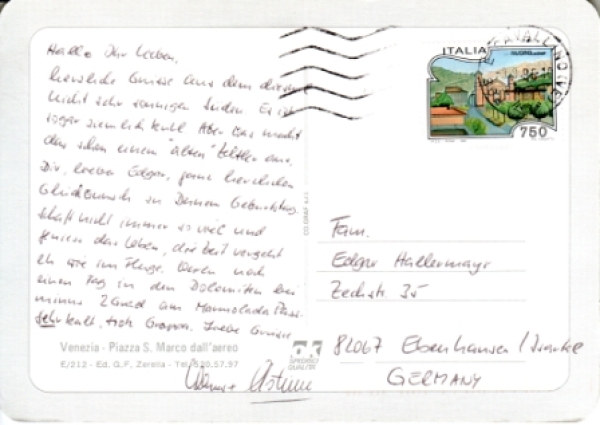 Hallo Ihr Lieben,
herzliche Grüsse aus dem diesmal
nicht sehr sonnigen Süden. Es ist
sogar ziemlich kühl. Aber das macht
doch schon einem "alten" Zeltler aus.
Dir, lieber Edgar, ganz herzlichen
Glückwunsch zu Deinem Geburtstag.
Schafft nicht immer so viel und
genießt das Leben, die Zeit vergeht
eh wie im Fluge. Waren noch
einen Tag in den Dolomiten bei
minus 2 Grad am Marmolada Pass.
Sehr kalt, trotz Grappa. Liebe Grüsse
Venezia - Piazza S. Marco dall'aereo
E/212 - Ed. G.F. Zerella - Tel. 520.57.97
COLGRAF s.r.l.
ITALIA
750
Fam.
Edgar Hallermayr
Zechstr. 35
82067 Ebenhausen / Isartal
GERMANY